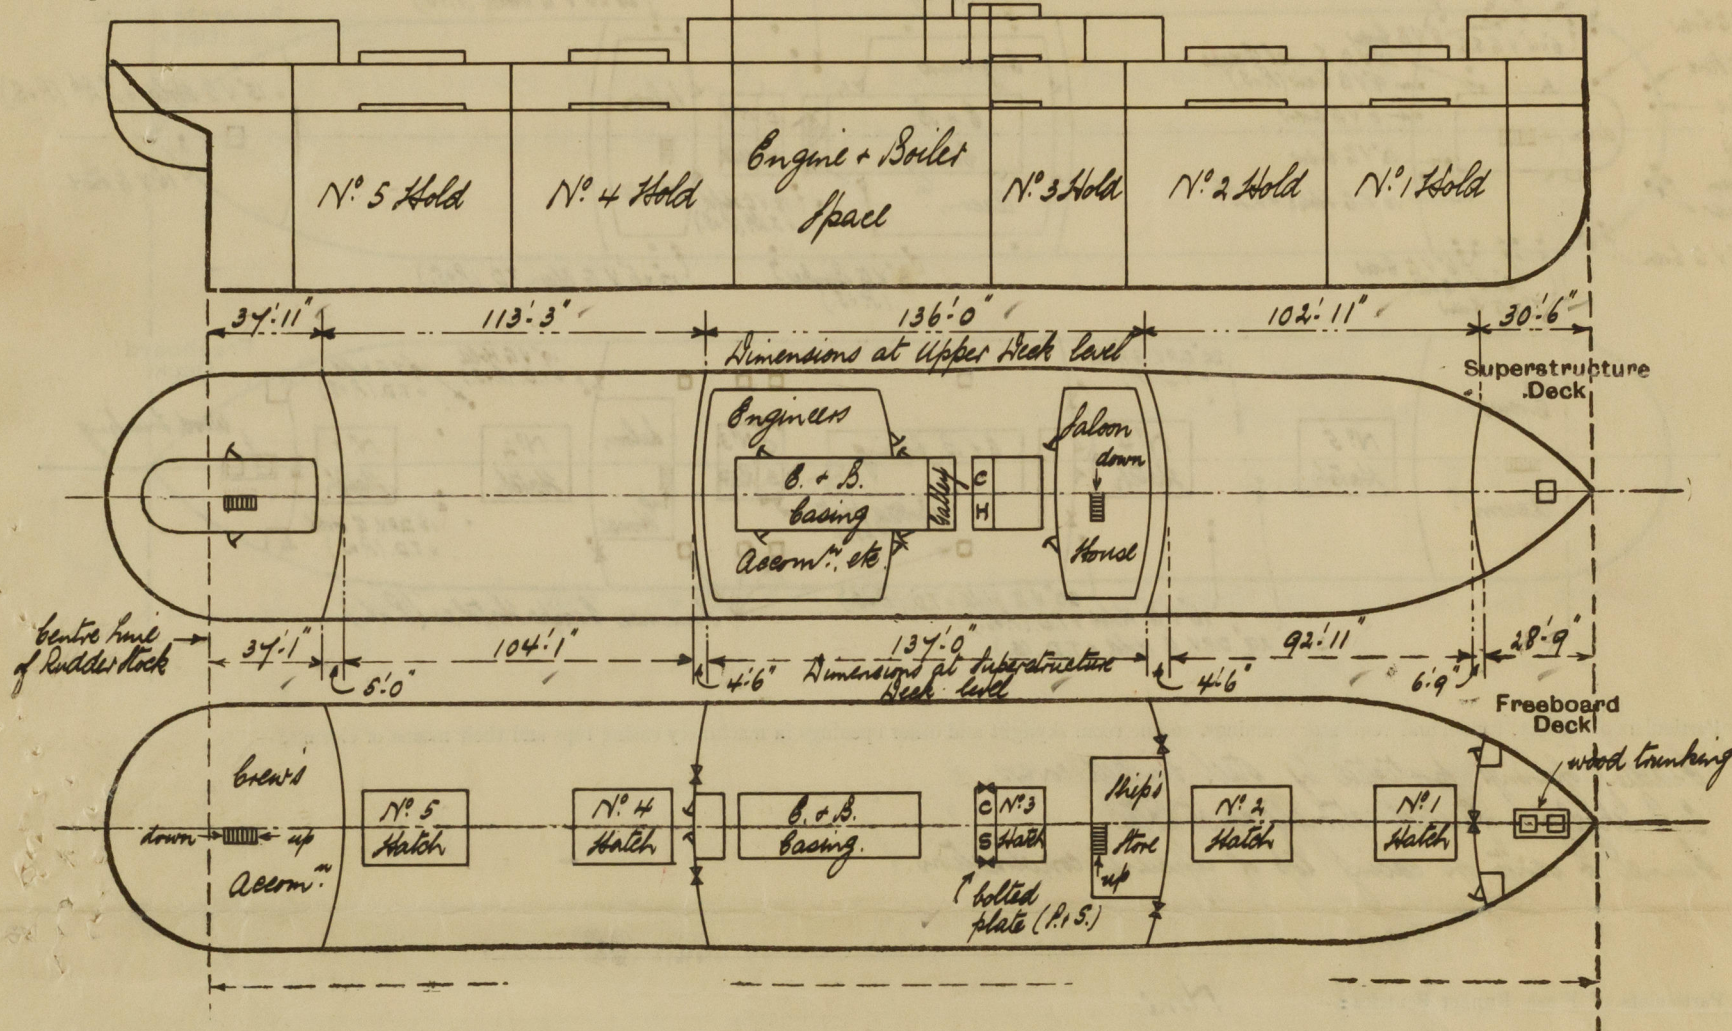 Nº 5 Hold
Nº 4 Hold
Engine + Boiler
Space
Nº 3 Hold
Nº 2 Hold
Nº 1 Hold
37'-11"
113'-3"
136'-0"
102'-11"
30'-6"
Dimensions at Upper Deck level
Superstructure
Deck
Engineers
E. + B.
Casing
Galley
C
H
Accomⁿ. etc.
Saloon
down
House
Centre Line
of Rudder Stock
37'-1"
5'-0"
104'-1"
4'-6"
137'-0"
Dimensions at Superstructure
Deck level
4'-6"
92'-11"
6'-9"
28'-9"
Freeboard
Deck
wood trunking
Crew's
down
up
Accomⁿ.
Nº 5
Hatch
Nº 4
Hatch
E. + B.
Casing.
C
S
Nº 3
Hatch
bolted
plate (P. & S.)
Ship's
Store
up
Nº 2
Hatch
Nº 1
Hatch